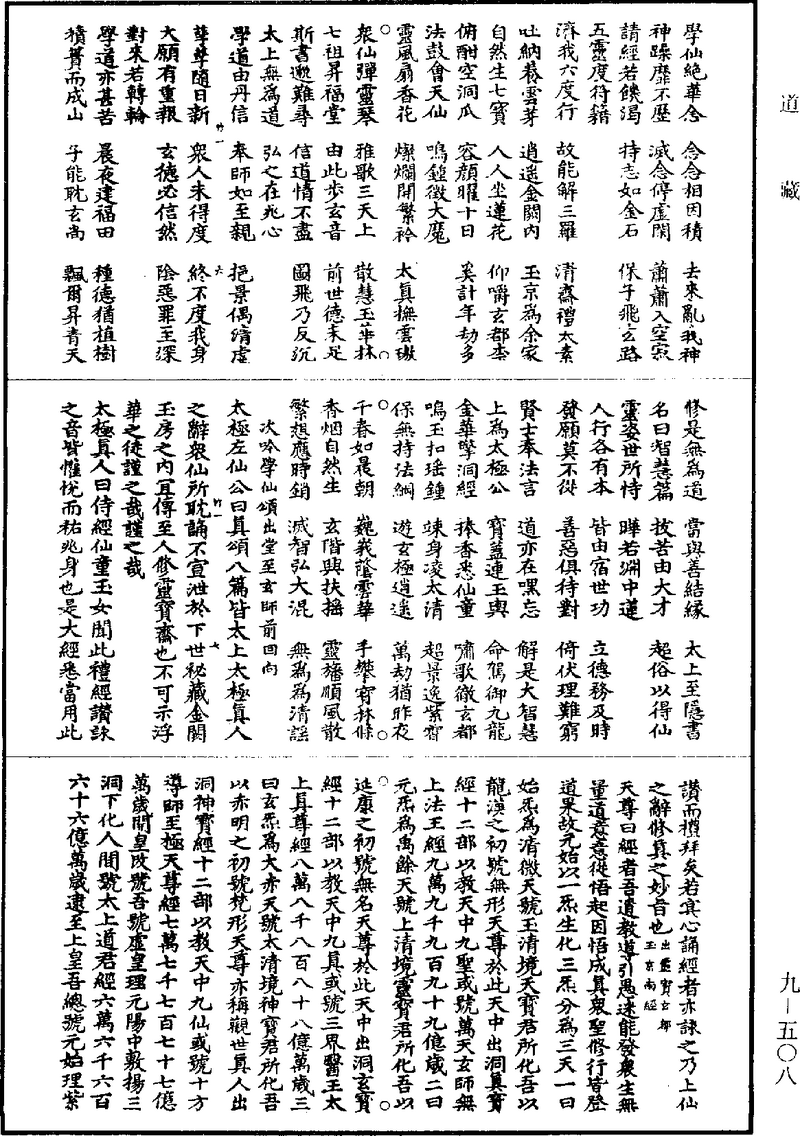 道藏
學仙絕華念　念念相因積　去來亂我神
神躁靡不歷　滅念停虛閑　蕭蕭入空寂
請經若饑渴　持志如金石　保子飛玄路
五靈度符籍
濟我六度行　故能解三羅　清齋禮太素
吐納養雲芽　逍遙金闕內　玉京為余家
自然生七寶　人人坐蓮花　仰嚼玄都柰
俯酣空洞瓜　容顏曜十日　奚計年劫多
法鼓會天仙　鳴鍾徵大魔
靈風扇香花　燦爛開繁衿　太真撫雲璈
衆仙彈靈琴　雅歌三天上　散慧玉華林
七祖昇福堂　由此步玄音　前世德未足
斯書邈難尋　信道情不盡　圖飛乃反沉
太上無為道　弘之在兆心
學道由丹信　奉師如至親　挹景偶清虛
孳孳隨日新　衆人未得度　終不度我身
大願有重報　玄德必信然　陰惡罪至深
對來若轉輪
學道亦甚苦　晨夜建福田　種德猶植樹
積簣而成山　子能耽玄尚　飄爾昇青天
修是無為道　當與善結緣　太上至隱書
名曰智慧篇　拔苦由大才　超俗以得仙
靈姿世所恃　曄若淵中蓮
人行各有本　皆由宿世功　立德務及時
發願莫不從　善惡俱待對　倚伏理難窮
賢士奉法言　道亦在嘿忘　解是大智慧
上為太極公　寶蓋連玉輿　命駕御九龍
金華擎洞經　捧香悉仙童　嘯歌徵玄都
鳴玉扣瑤鍾　竦身凌太清　超景逸紫霄
保無持法綱　遊玄極逍遙　萬劫猶昨夜
千春如晨朝　巍峩蔭雲華　手攀寶林條
香烟自然生　玄階與扶搖　靈旛順風散
繁想應時銷　滅智弘大混　無為為清謠
次吟學仙頌出堂至玄師前回向
太極左仙公曰真頌八篇皆太上太極真人
之辭衆仙所耽誦不宣泄於下世祕藏金闕
玉房之內宜傳至人修靈寶齋也不可示浮
華之徒謹之哉謹之哉
太極真人曰侍經仙童玉女聞此禮經讚詠
之音皆懽悅而祐兆身也是大經悉當用此
讚而禮拜矣若寘心誦經者亦詠之乃上仙
之辭修真之妙旨也出靈寶玄都玉京南經
天尊曰經者吾遺教導引愚迷能發衆生無
量道意意從悟起因悟成真衆聖修行皆登
道果故元始以一炁生化三炁分為三天一曰
始炁為清微天號玉清境天寶君所化吾以
龍漢之初號無形天尊於此天中出洞真寶
經十二部以教天中九聖或號萬天玄師無
上法王經九萬九千九百九十九億歲二曰
元炁為禹餘天號上清境靈寶君所化吾以
延康之初號無名天尊於此天中出洞玄寶
經十二部以教天中九真或號三界醫王太
上真尊經八萬八千八百八十八億萬歲三
曰玄炁為大赤天號太清境神寶君所化吾
以赤明之初號梵形天尊亦稱觀世真人出
洞神寶經十二部以教天中九仙或號十方
導師至極天尊經七萬七千七百七十七億
萬歲開皇改號吾號虛皇理元陽中敷揚三
洞下化人間號太上道君經六萬六千六百
六十六億萬歲逮至上皇吾總號元始理紫
九－五〇八